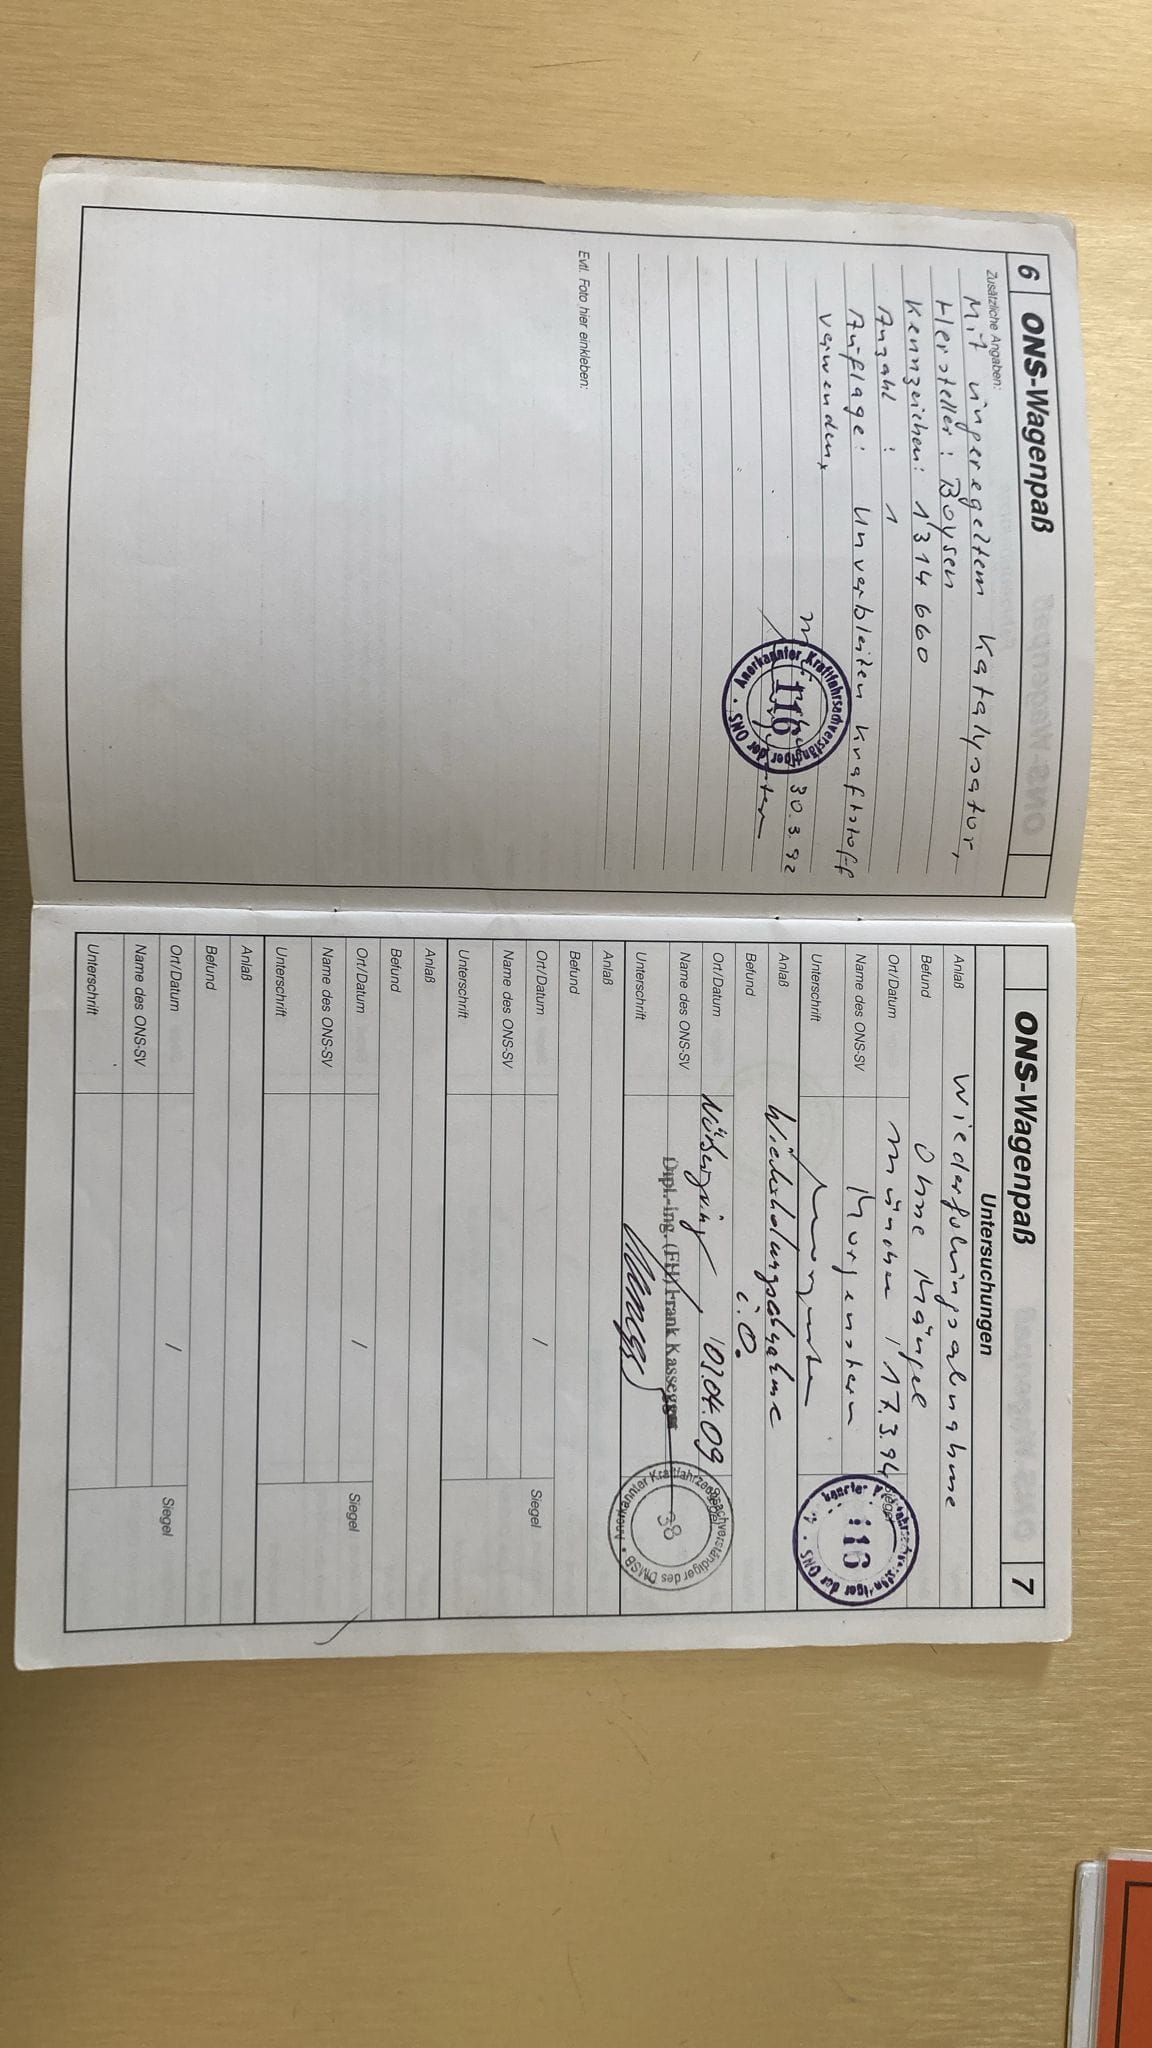 6 ONS-Wagenpaß
Zusätzliche Angaben:
Mit ungeregeltem Katalysator,
Hersteller: Boysen
Kennzeichen: 1'314 660
Anzahl : 1
Auflage: Unverbleiten Kraftstoff
verwenden,
30.3.92
Anerkannter Kraftfahrsachverständiger der ONS
116
Evtl. Foto hier einkleben:
ONS-Wagenpaß 7
Untersuchungen
Anlaß Wiederholungsabnahme
Befund Ohne Mängel
Ort/Datum München / 17.3.94 Siegel
Name des ONS-SV Morgenstern
Unterschrift
116
Anlaß Wiederholungsabnahme
Befund i.O.
Ort/Datum Nürburgring / 04.09 Siegel
Name des ONS-SV Dipl.-Ing. (FH) Frank
Unterschrift
Anerkannter Kraftfahrzeugsachverständiger des DMSB
38
Anlaß
Befund
Ort/Datum / Siegel
Name des ONS-SV
Unterschrift
Anlaß
Befund
Ort/Datum / Siegel
Name des ONS-SV
Unterschrift
Anlaß
Befund
Ort/Datum / Siegel
Name des ONS-SV
Unterschrift